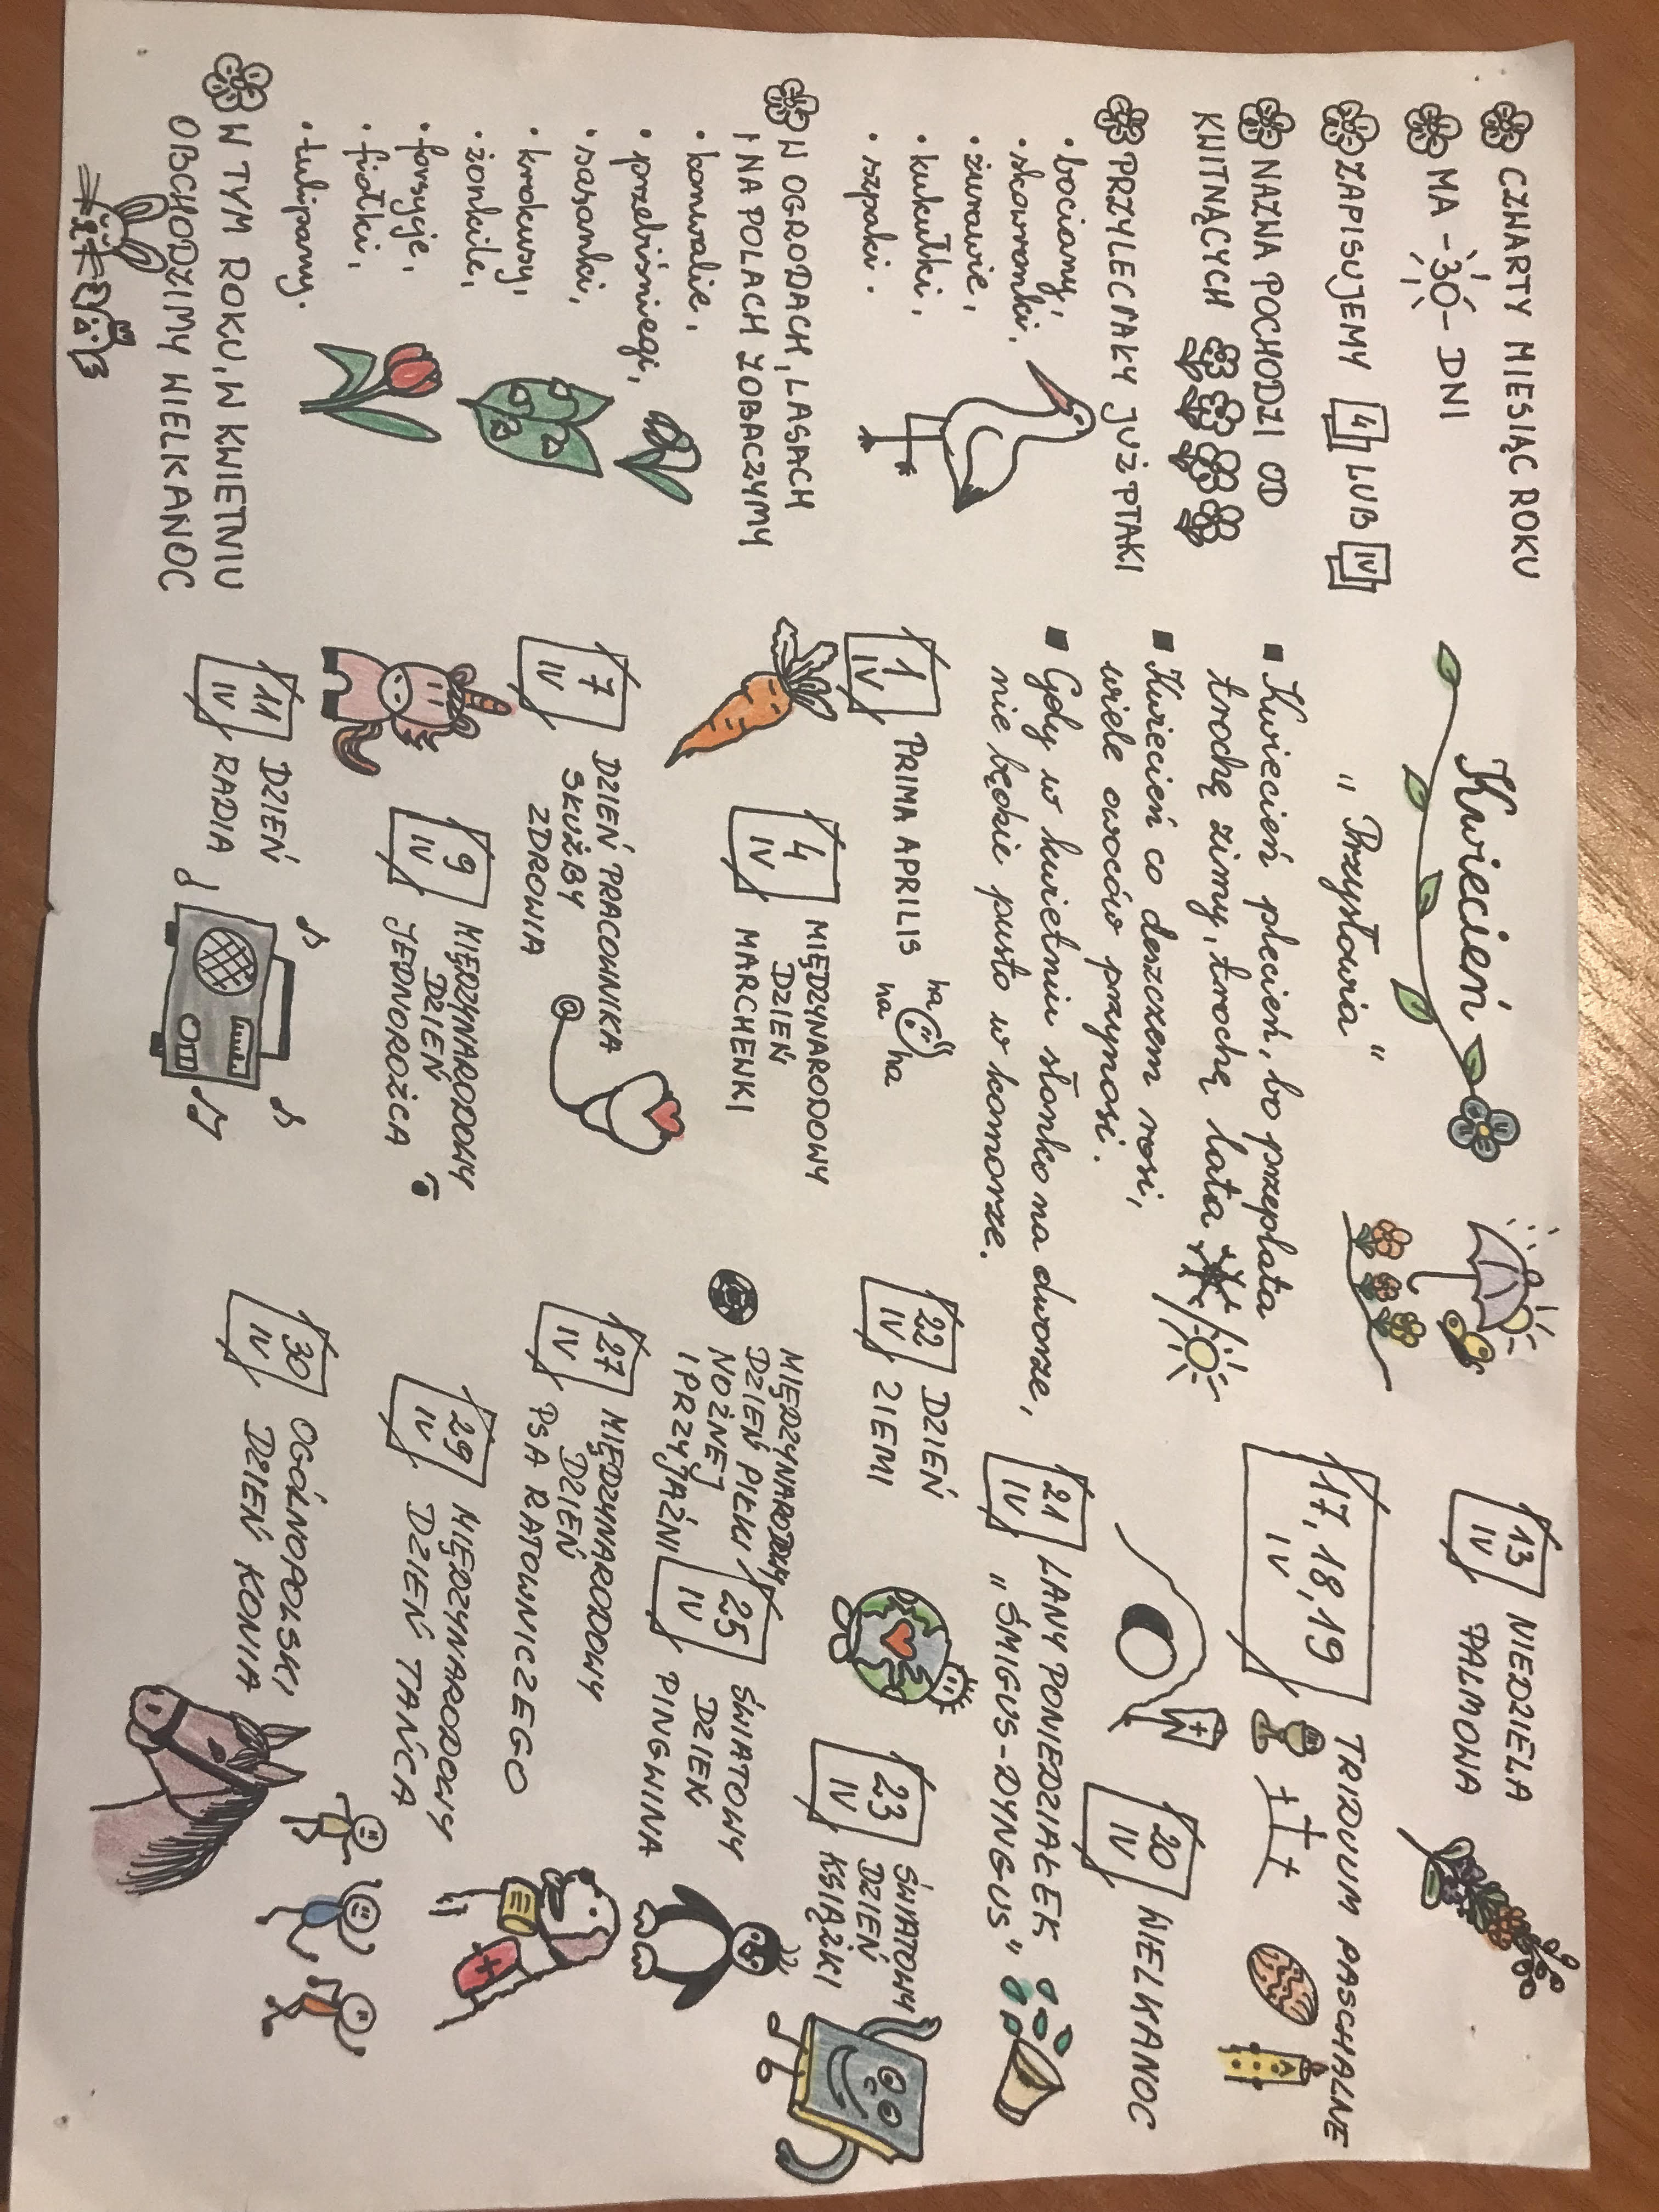 Kwiecień
CZWARTY MIESIĄC ROKU
MA -30- DNI
ZAPISUJEMY 4 LUB IV
NAZWA POCHODZI OD
KWITNĄCYCH
PRZYLECIAŁY JUŻ PTAKI
• bociany,
• skowronki,
• żurawie,
• kukułki,
• szpaki.
W OGRODACH, LASACH
I NA POLACH ZOBACZYMY
• konwalie,
• przebiśniegi,
• sasanki,
• krokusy,
• żonkile,
• forsycje,
• fiołki,
• tulipany.
W TYM ROKU, W KWIETNIU
OBCHODZIMY WIELKANOC
„Przysłowia”
▪ Kwiecień plecień, bo przeplata
trochę zimy, trochę lata
▪ Kwiecień co deszczem rosi,
wiele owoców przynosi.
▪ Gdy w kwietniu słonko na dworze,
nie będzie pusto w komorze.
1 IV PRIMA APRILIS
ha ha ha
4 IV MIĘDZYNARODOWY
DZIEŃ
MARCHENKI
7 IV DZIEŃ PRACOWNIKA
SŁUŻBY
ZDROWIA
9 IV MIĘDZYNARODOWY
DZIEŃ
JEDNOROŻCA
11 IV DZIEŃ
RADIA
13 IV NIEDZIELA
PALMOWA
17, 18, 19 IV TRIDUUM PASCHALNE
20 IV WIELKANOC
21 IV LANY PONIEDZIAŁEK
„ŚMIGUS-DYNGUS”
22 IV DZIEŃ
ZIEMI
23 IV ŚWIATOWY
DZIEŃ
KSIĄŻKI
MIĘDZYNARODOWY
DZIEŃ PIŁKI
NOŻNEJ
I PRZYJAŹNI
25 IV ŚWIATOWY
DZIEŃ
PINGWINA
27 IV MIĘDZYNARODOWY
DZIEŃ
PSA RATOWNICZEGO
29 IV MIĘDZYNARODOWY
DZIEŃ TAŃCA
30 IV OGÓLNOPOLSKI
DZIEŃ KONIA